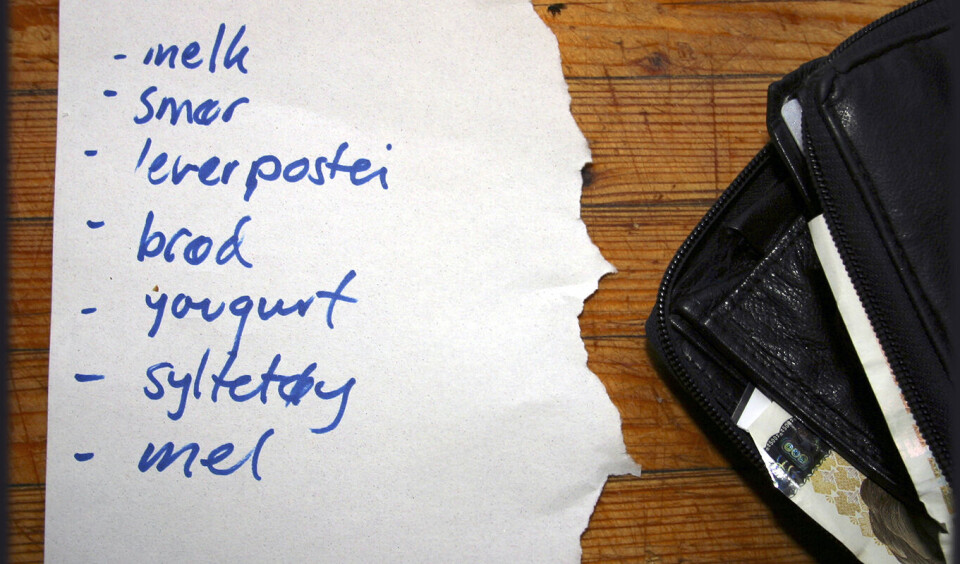 - melk
- smør
- leverpostei
- brød
- yougurt
- syltetøy
- mel